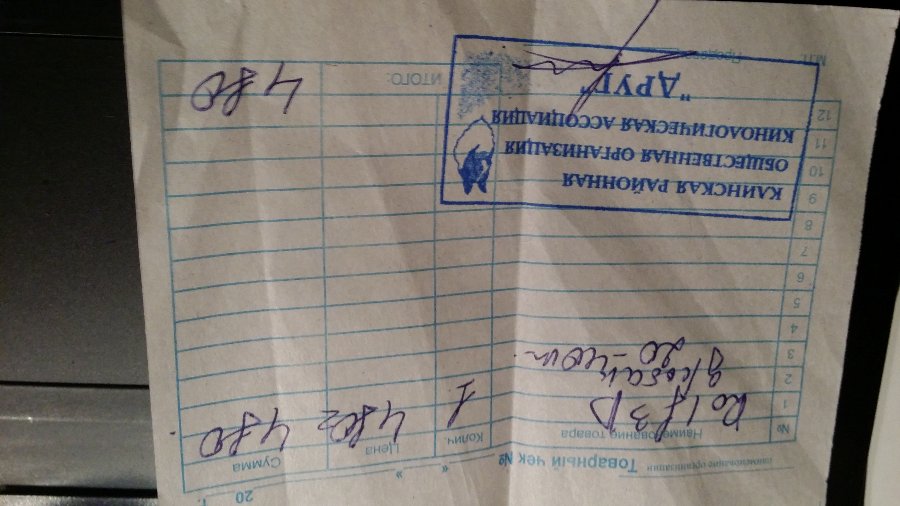 наименование организации
Товарный чек №
« »
20 г.
№ Наименование товара Колич. Цена Сумма
1 Rolf 3D 1 480= 480
2 д/собак
3 20-40
4
5
6
7
8
9
10
11
12
ИТОГО: 480
КЛИНСКАЯ РАЙОННАЯ
ОБЩЕСТВЕННАЯ ОРГАНИЗАЦИЯ
КИНОЛОГИЧЕСКАЯ АССОЦИАЦИЯ
"ДРУГ"
МП